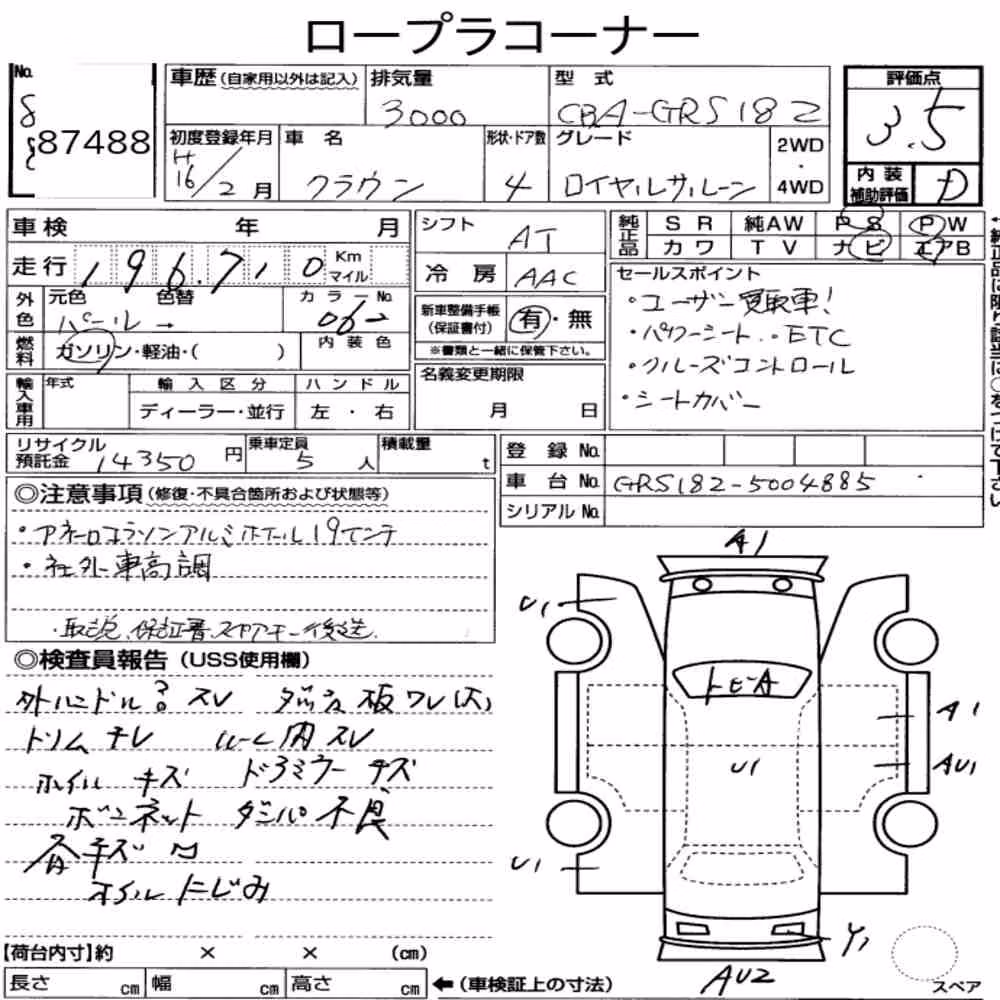 ロープラコーナー
No.
87488
車歴(自家用以外は記入) 排気量 3000
型式 CBA-GRS182
評価点 3.5
初度登録年月 H16/2月
車名 クラウン
形状・ドア数 4
グレード ロイヤルサルーン
2WD・4WD
内装補助評価 D
車検 年 月
走行 196,710 Km マイル
シフト AT
冷房 AAC
純正品 SR 純AW PS PW
カワ TV ナビ エアB
外色 元色 パール → 色替
カラーNo. 062
内装色
燃料 ガソリン・軽油・( )
新車整備手帳(保証書付) 有・無
※書類と一緒に保管下さい。
セールスポイント
・ユーザー買取車!
・パワーシート、・ETC
・クルーズコントロール
・シートカバー
輸入車用 年式 輸入区分 ハンドル
ディーラー・並行 左・右
名義変更期限
月 日
リサイクル預託金 14350円
乗車定員 5人
積載量 t
登録No.
車台No. GRS182-5004885
シリアルNo.
◎注意事項(修復・不具合箇所および状態等)
アルミホイール19インチ
・社外車高調
・取説、保証書、スペアキー後送
◎検査員報告(USS使用欄)
外ハンドル スレ ダッシュ板ワレ(大)
トリム チレ ルーム内スレ
ホイル キズ ドアミラー キズ
ボンネット ダンパ不良
各キズ凹
オイルにじみ
A1
U1
トビA
A1
U1
AU1
U1
Y1
AU2
スペア
【荷台内寸】約 × × (cm)
長さ cm 幅 cm 高さ cm ←(車検証上の寸法)